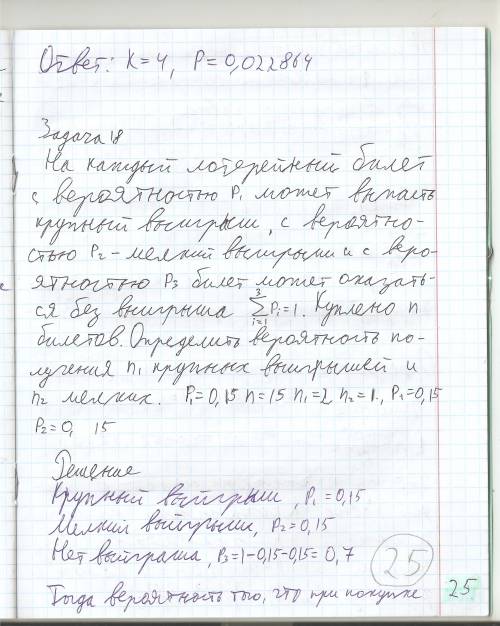 Ответ: K=4, P=0,022864
Задача 18
На каждый лотерейный билет
с вероятностью P₁ может выпасть
крупный выигрыш, с вероятно-
стью P₂ - мелкий выигрыш и с веро-
ятностью P₃ билет может оказать-
ся без выигрыша ∑³ᵢ₌₁ Pᵢ=1. Куплено n
билетов. Определить вероятность по-
лучения n₁ крупных выигрышей и
n₂ мелких. P₁=0,15 n=15 n₁=2 n₂=1., P₁=0,15
P₂=0, 15
Решение
Крупный выйгрыш, P₁=0,15
Мелкий выйгрыш, P₂=0,15
Нет выйграша, P₃=1-0,15-0,15=0,7
25
Тогда вероятность того, что при покупке
25